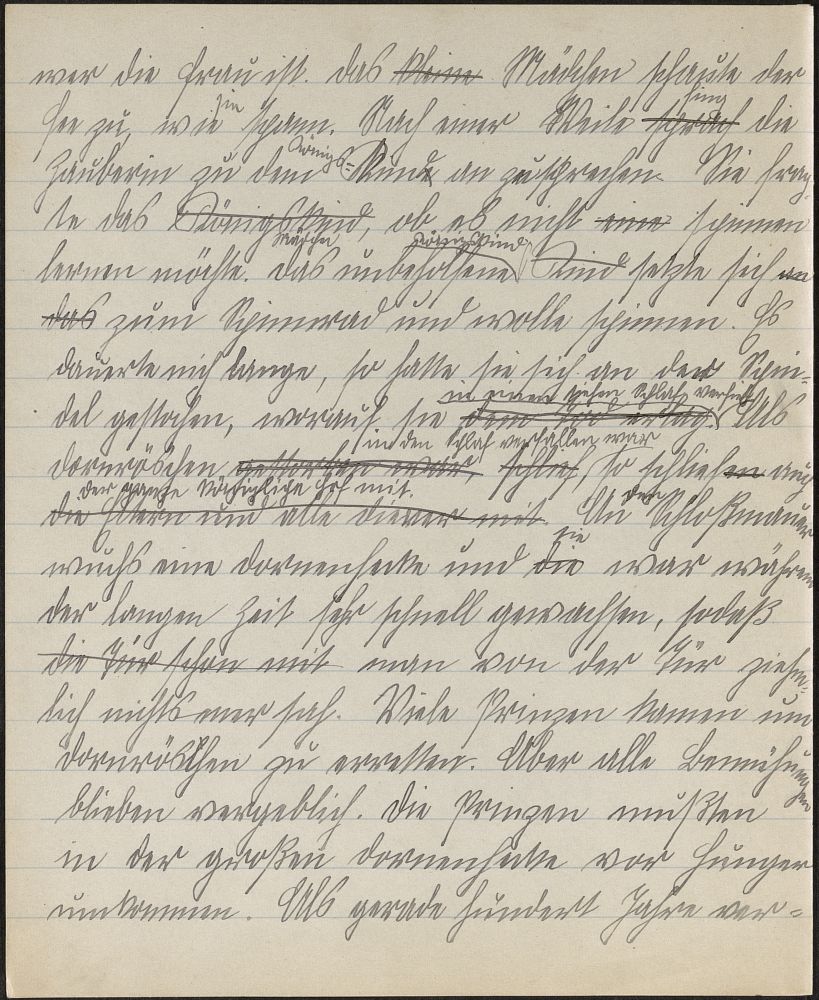 wer die Frau ist. Das kleine Mädchen schaute der
Fee zu, wie sie spann. Nach einer Weile fing die
Zauberin zu dem Königs-Kind an zu sprechen. Sie frag-
te das Königskind, ob es nicht eine spinnen
Mädchen Königskind
lernen möchte. Das unbeholfene Kind setzte sich an
das zum Spinnrad und wolle spinnen. Es
dauerte nich lange, so hatte sie sich an der Spin-
in einen tiefen Schlaf verfiel
del gestochen, worauf sie dem Tod erlag. Als
in den Schlaf verfallen war
Dornröschen gestorben war, schlief, so schliefen auch
der ganze Königliche Hof mit.
die Eltern und alle Diener mit. An der Schloßmauer
wuchs eine Dornenhecke und die sie war während
der langen Zeit sehr schnell gewachsen, sodaß
die Tür schon mit man von der Tür ziehm-
lich nichts mer sah. Viele Prinzen kamen um
Dornröschen zu erretten. Aber alle Bemühungen
blieben vergeblich. Die Prinzen mußten
in der großen Dornenhecke vor Hunger
umkommen. Als gerade hundert Jahre ver-